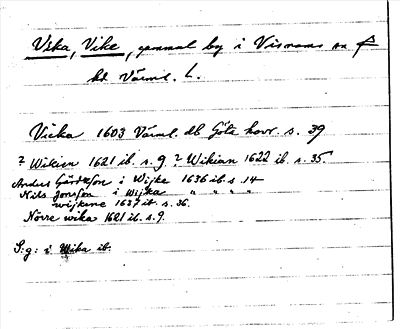 Vika, Vike, gammal by i Visnums sn
hd Värml. L.
Vicka 1603 Värml. db Göta hovr. s. 39
? Wikien 1621 ib. s. 9 ? Wikian 1622 ib. s. 35.
Anders Gårdsson i Wijke 1636 ib s. 14
Nils Jonsson i Wijka " " " "
wijkene 1637 ib. s. 36.
Norre wika 1621 ib. s. 9.
S: g: i Wika ib.